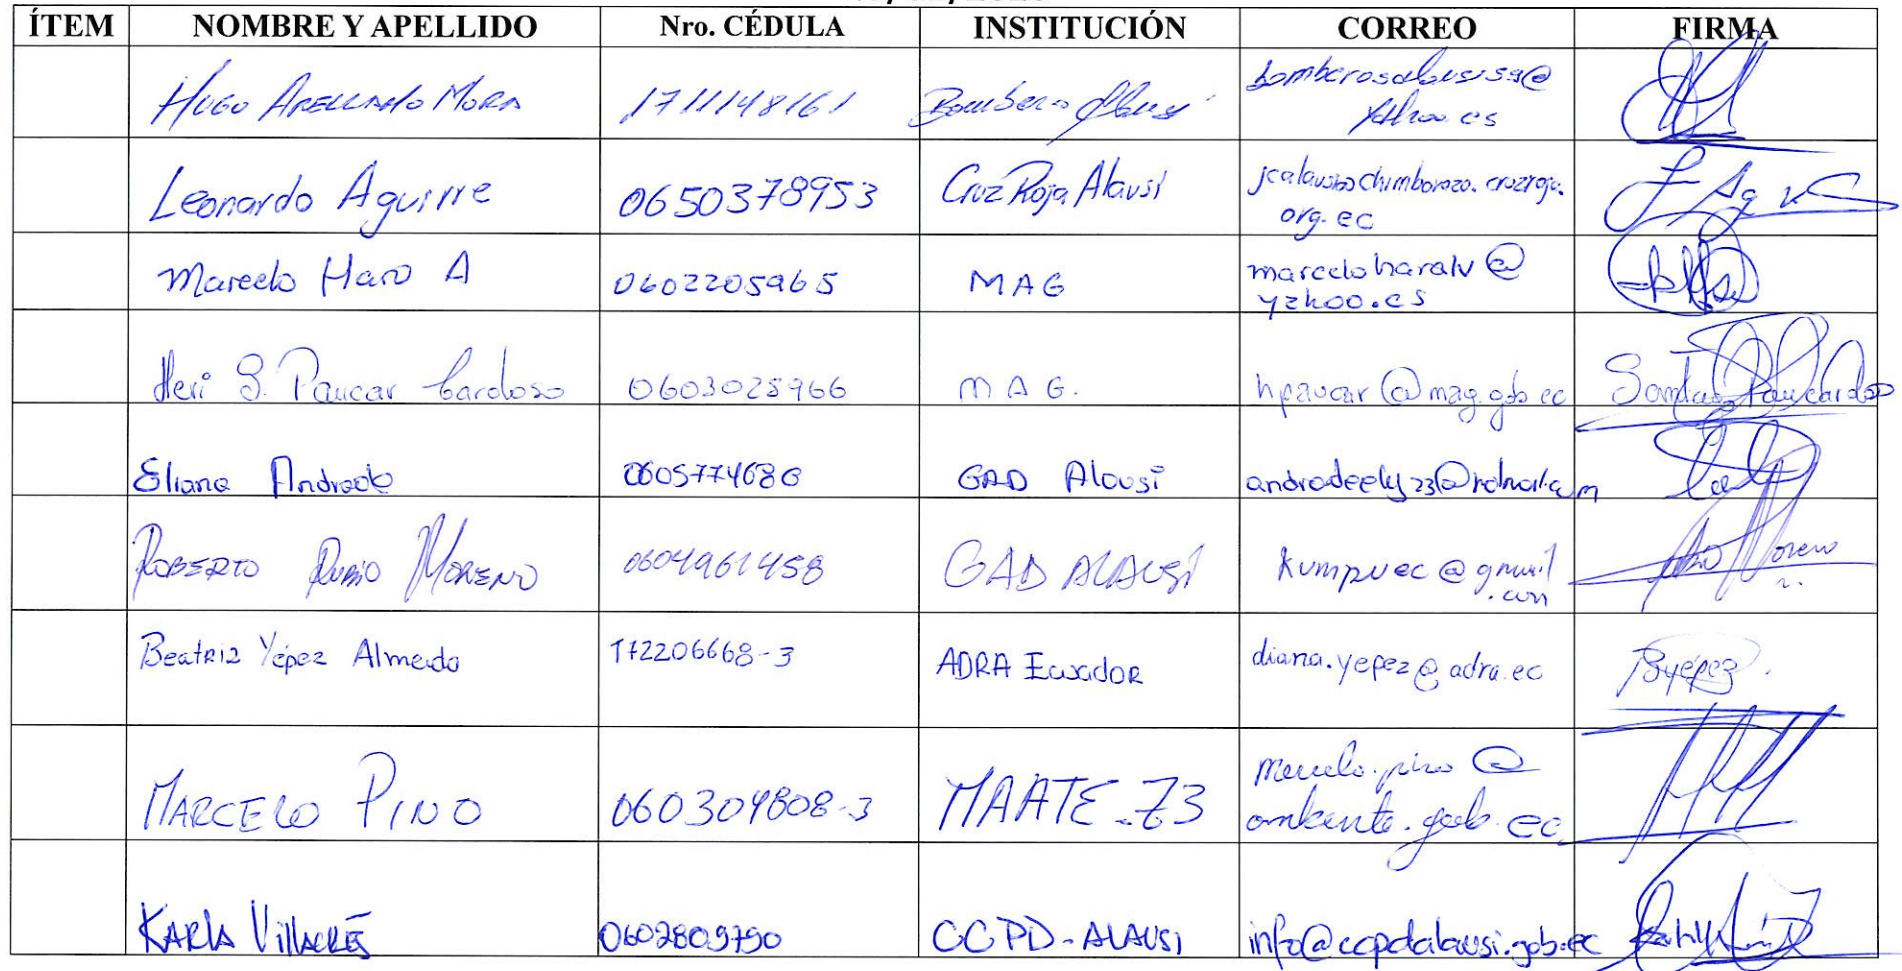 ÍTEM NOMBRE Y APELLIDO Nro. CÉDULA INSTITUCIÓN CORREO FIRMA
HUGO ARELLANO MORA 1711148161 Bomberos Alausí bomberosalausi59@
yahoo.es
Leonardo Aguirre 0650378953 Cruz Roja Alausí chimborazo.cruzroja.
org.ec
Marcelo Haro A 0602205965 MAG marceloharalv@
yahoo.es
Heri S. Paucar Cardoso 0603025966 MAG. hpaucar@mag.gob.ec
Eliana Andrade GAD Alausí andradeely23@hotmail.com
ROBERTO RUBIO MORENO 0604961458 GAD ALAUSÍ kumpuec@gmail
.com
Beatriz Yépez Almeida 172206668-3 ADRA Ecuador diana.yepez@adra.ec Byépez
MARCELO PINO 060304808-3 MAATE-Z3 marcelo.pino@
ambiente.gob.ec
KARLA VILLACRÉS 0602809790 CCPD-ALAUSI info@ccpdalausi.gob.ec